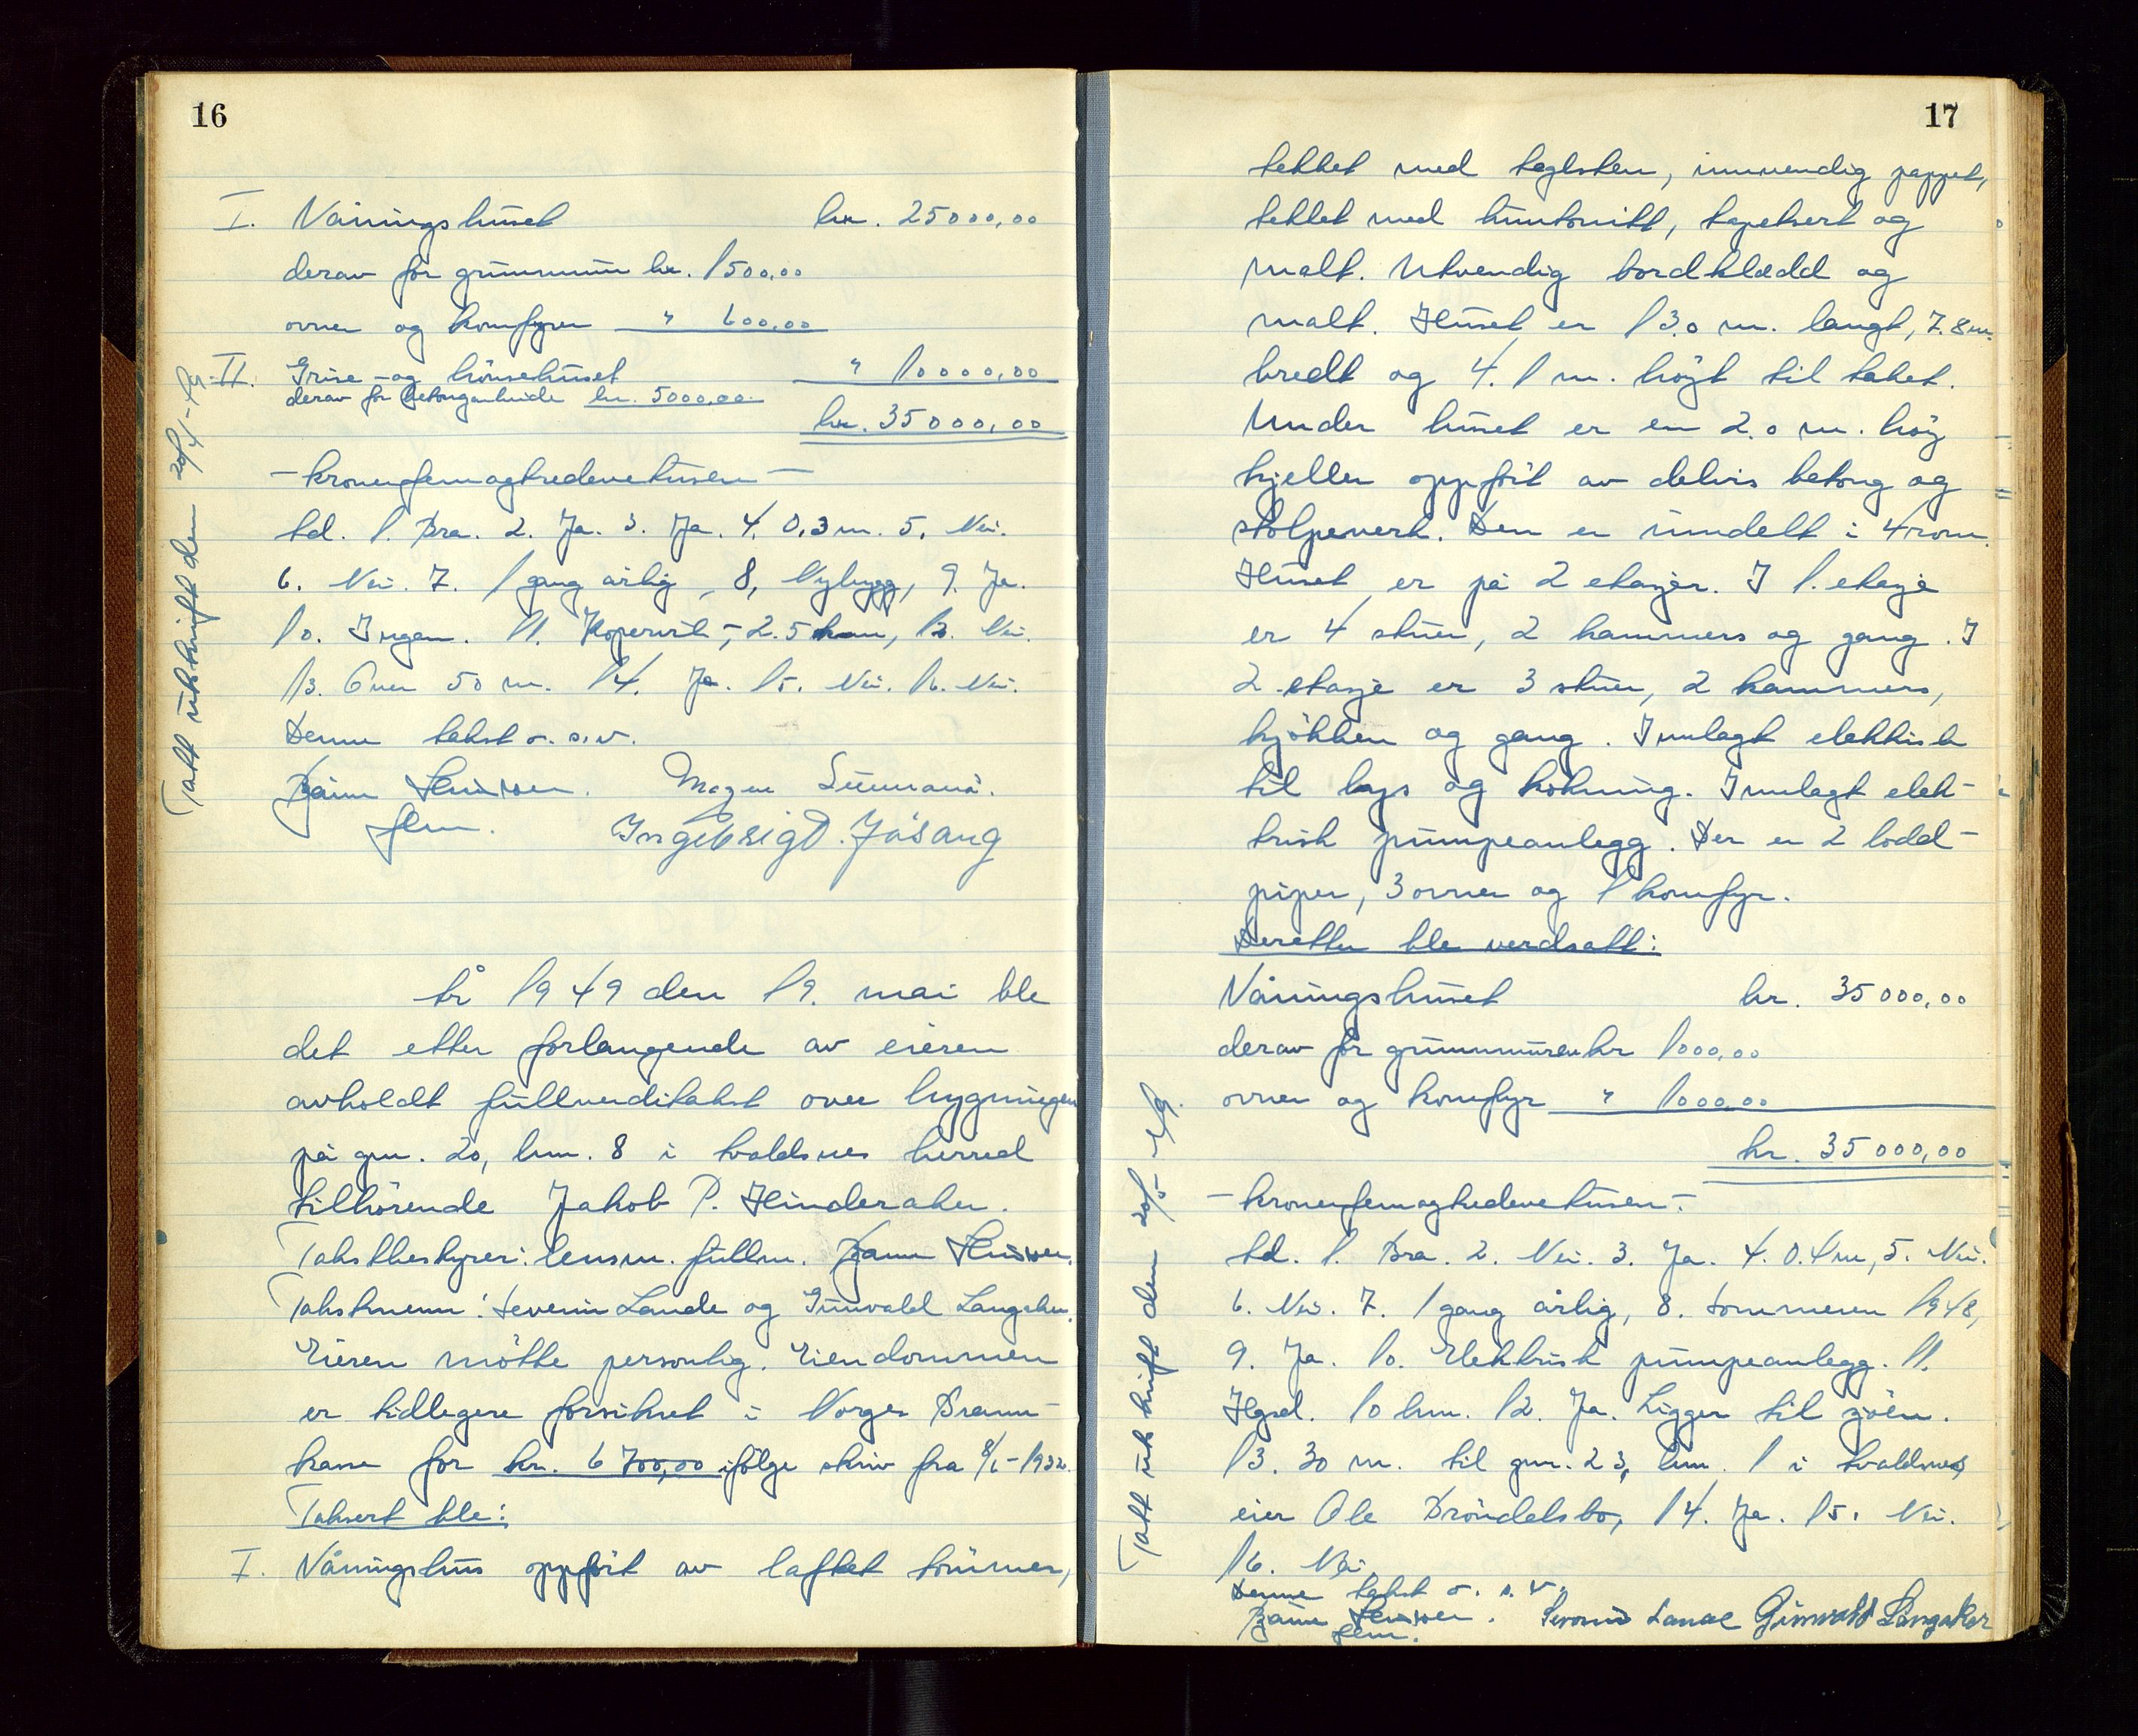 16
I. Våningshuset kr. 25000,00
derav for grunnmur kr. 1500,00
ovner og komfyrer " 600,00
II. Grise- og hönsehuset " 10000,00
derav for betongarbeide kr. 5000,00
kr. 35000,00
- kronerfemogtredevetusen -
td. 1. Bra. 2. Ja. 3. Ja. 4. 0,3 m. 5. Nei.
6. Nei. 7. 1 gang årlig, 8, Nybygg, 9. Ja.
10. Ingen. 11. Kopervik, 2.5 km, 12. Nei.
13. Over 50 m. 14. Ja. 15. Nei. 16. Nei.
Denne takst o.s.v.
Bjarne
flm. Ingebrigt Jösang
Tatt utskrift den 20/4-49.
År 1949 den 19. mai ble
det etter forlangende av eieren
avholdt fullverditakst over bygningen
på gnr. 20, bnr. 8 i Avaldsnes herred
tilhörende Jakob P. Hinderaker.
Takstbestyrer: lensm. fullm. Bjarne
Takstmenn: Severin Lande og Gunvald Langaker.
Eieren mötte personlig. Eiendommen
er tidligere forsikret i Norges Brann-
kasse for kr. 6700,00 ifölge skriv fra 8/6-1932.
Taksert ble:
I. Våningshus oppfört av laftet tömmer,
17
tekket med taglsten, innvendig pappet,
tettet med huntonitt, tapetsert og
malt. Utvendig bordklædd og
malt. Huset er 13.0 m. langt, 7.8 m.
bredt og 4.1 m. högt til taket.
Under huset er en 2.0 m. höy
kjeller oppfört av delvis betong og
stolpeverk. Den er inndelt i 4 rom.
Huset er på 2 etasjer. I 1. etasje
er 4 stuer, 2 kammers og gang. I
2. etasje er 3 stuer, 2 kammers,
kjökken og gang. Innlagt elektrisk
til lys og kokning. Innlagt elek-
trisk pumpeanlegg. Der er 2 lodd-
piper, 3 ovner og 1 komfyr.
Deretter ble verdsatt:
Våningshuset kr. 35000,00
derav for grunnmuren kr 1000,00
ovner og komfyr " 1000,00
kr. 35000,00
- kronerfemogtredevetusen -
td. 1. Bra. 2. Nei. 3. Ja. 4. 0.4 m, 5. Nei.
6. Nei. 7. 1 gang årlig, 8. Sommeren 1948,
9. Ja. 10. Elektrisk pumpeanlegg. 11.
Hgsd. 10 km. 12. Ja. Ligger til sjöen.
13. 30 m. til gnr. 23, bnr. 1 i Avaldsnes,
eier Ole Bröndelsbo, 14. Ja. 15. Nei.
16. Nei
Denne takst o.s.v.
Bjarne Severin Lande Gunvald Langaker
flm.
Tatt utskrift den 20/5-49.